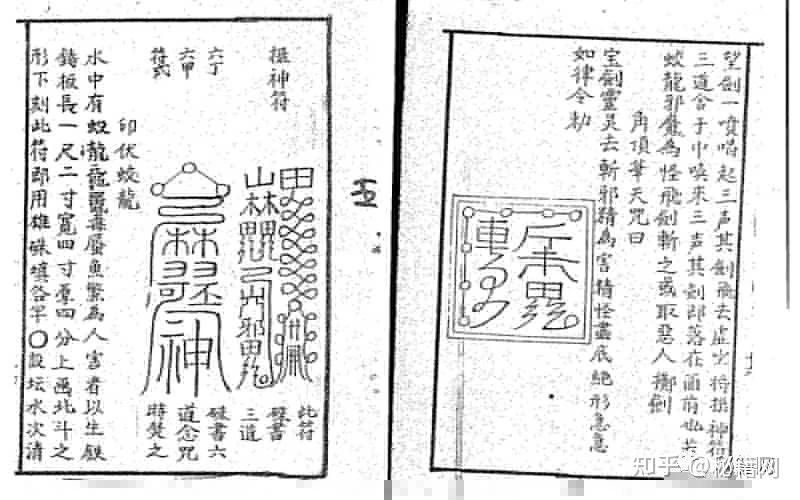 望劍一噴喝起三声其劍飛去虚空将摂神符
三道合于中喚来三声其劍即落在面前也若
蛟龍邪魔為怪飛劍斬之或取惡人擲劍
角頂筆天咒曰
宝劍靈灵去斬邪精為害精怪盡底絶形急急
如律令勅
五
摂神符
此符
硃書
三道
六丁
六甲
符式
硃書六
道念咒
時焚之
印伏蛟龍
水中有蛟毒蜃魚鱉為人害者以生鉄
鑄板長一尺二寸寬四寸厚四分上画北斗之
形下刻此符即用雄硃填〇設坛水次清
知乎 @秘籍网